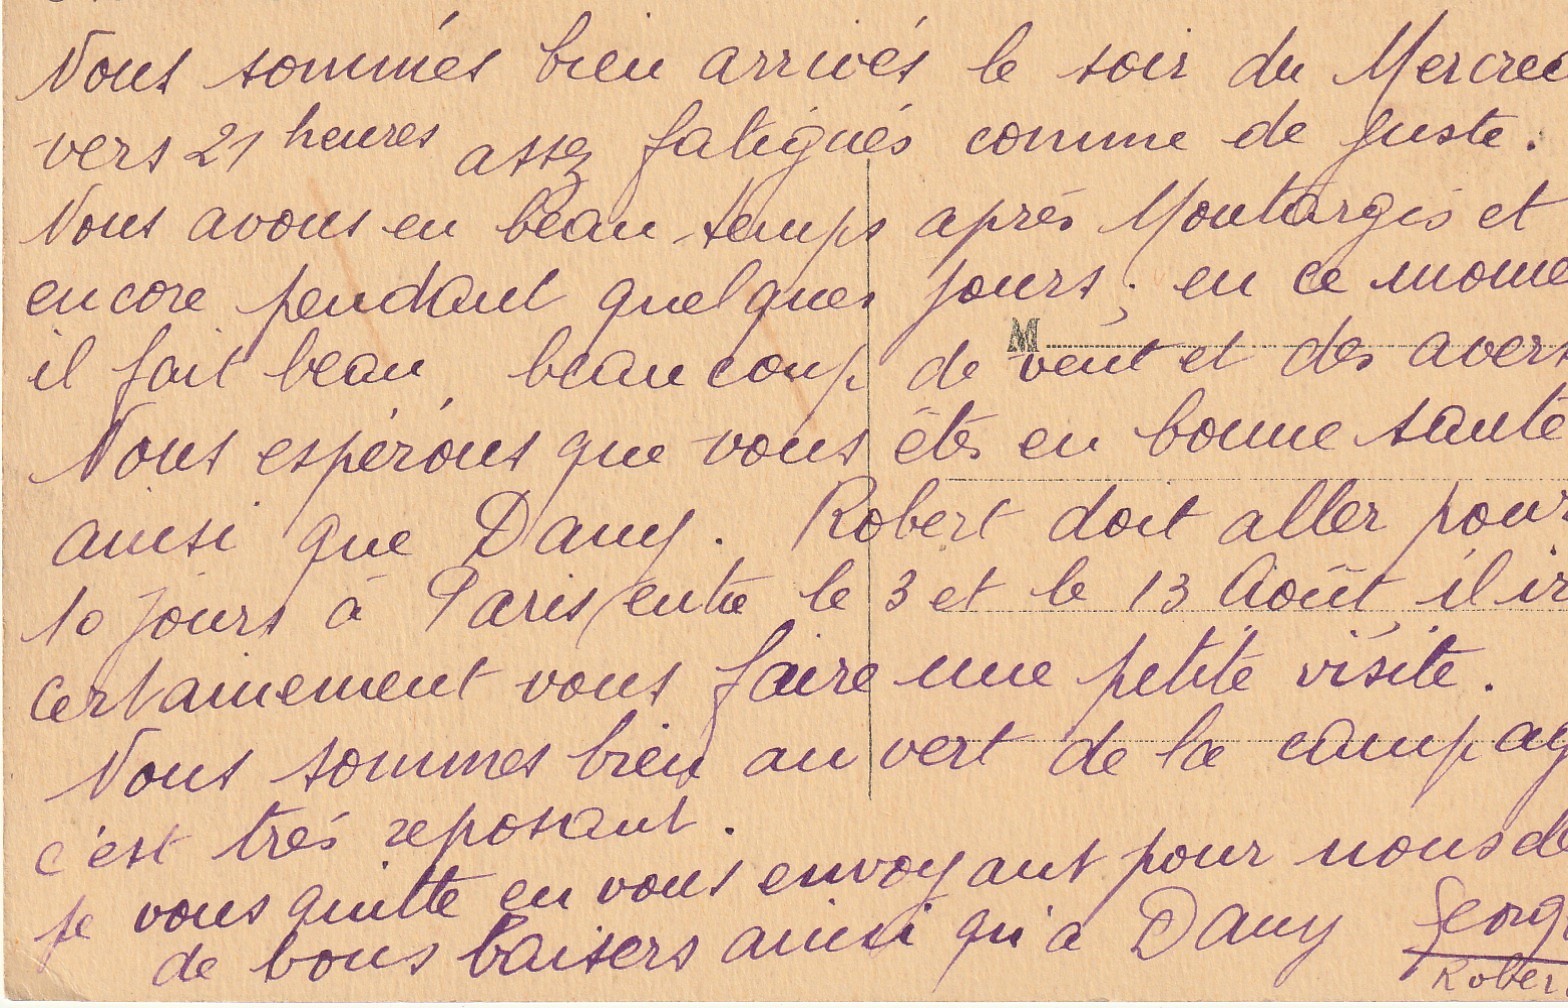 Nous sommes bien arrivés le soir du Mercred
vers 21 heures assez fatigués comme de juste.
Nous avons eu beau temps après Montargis et
encore pendant quelques jours; en ce mome
il fait beau, beaucoup de vent et des avers
M
Nous espérons que vous êtes en bonne santé
ainsi que Dany. Robert doit aller pour
10 jours à Paris, entre le 3 et le 13 Août, il ir
certainement vous faire une petite visite.
Nous sommes bien au vert de la campag
c'est très reposant.
je vous quitte en vous envoyant pour nous de
de bons baisers ainsi qu'à Dany Georg
Rober